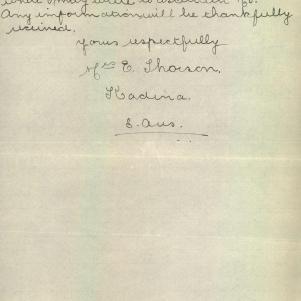 Any information will be thankfully
received.
Yours respectfully
Mrs E. Thorson.
Kadina.
S. Aus.